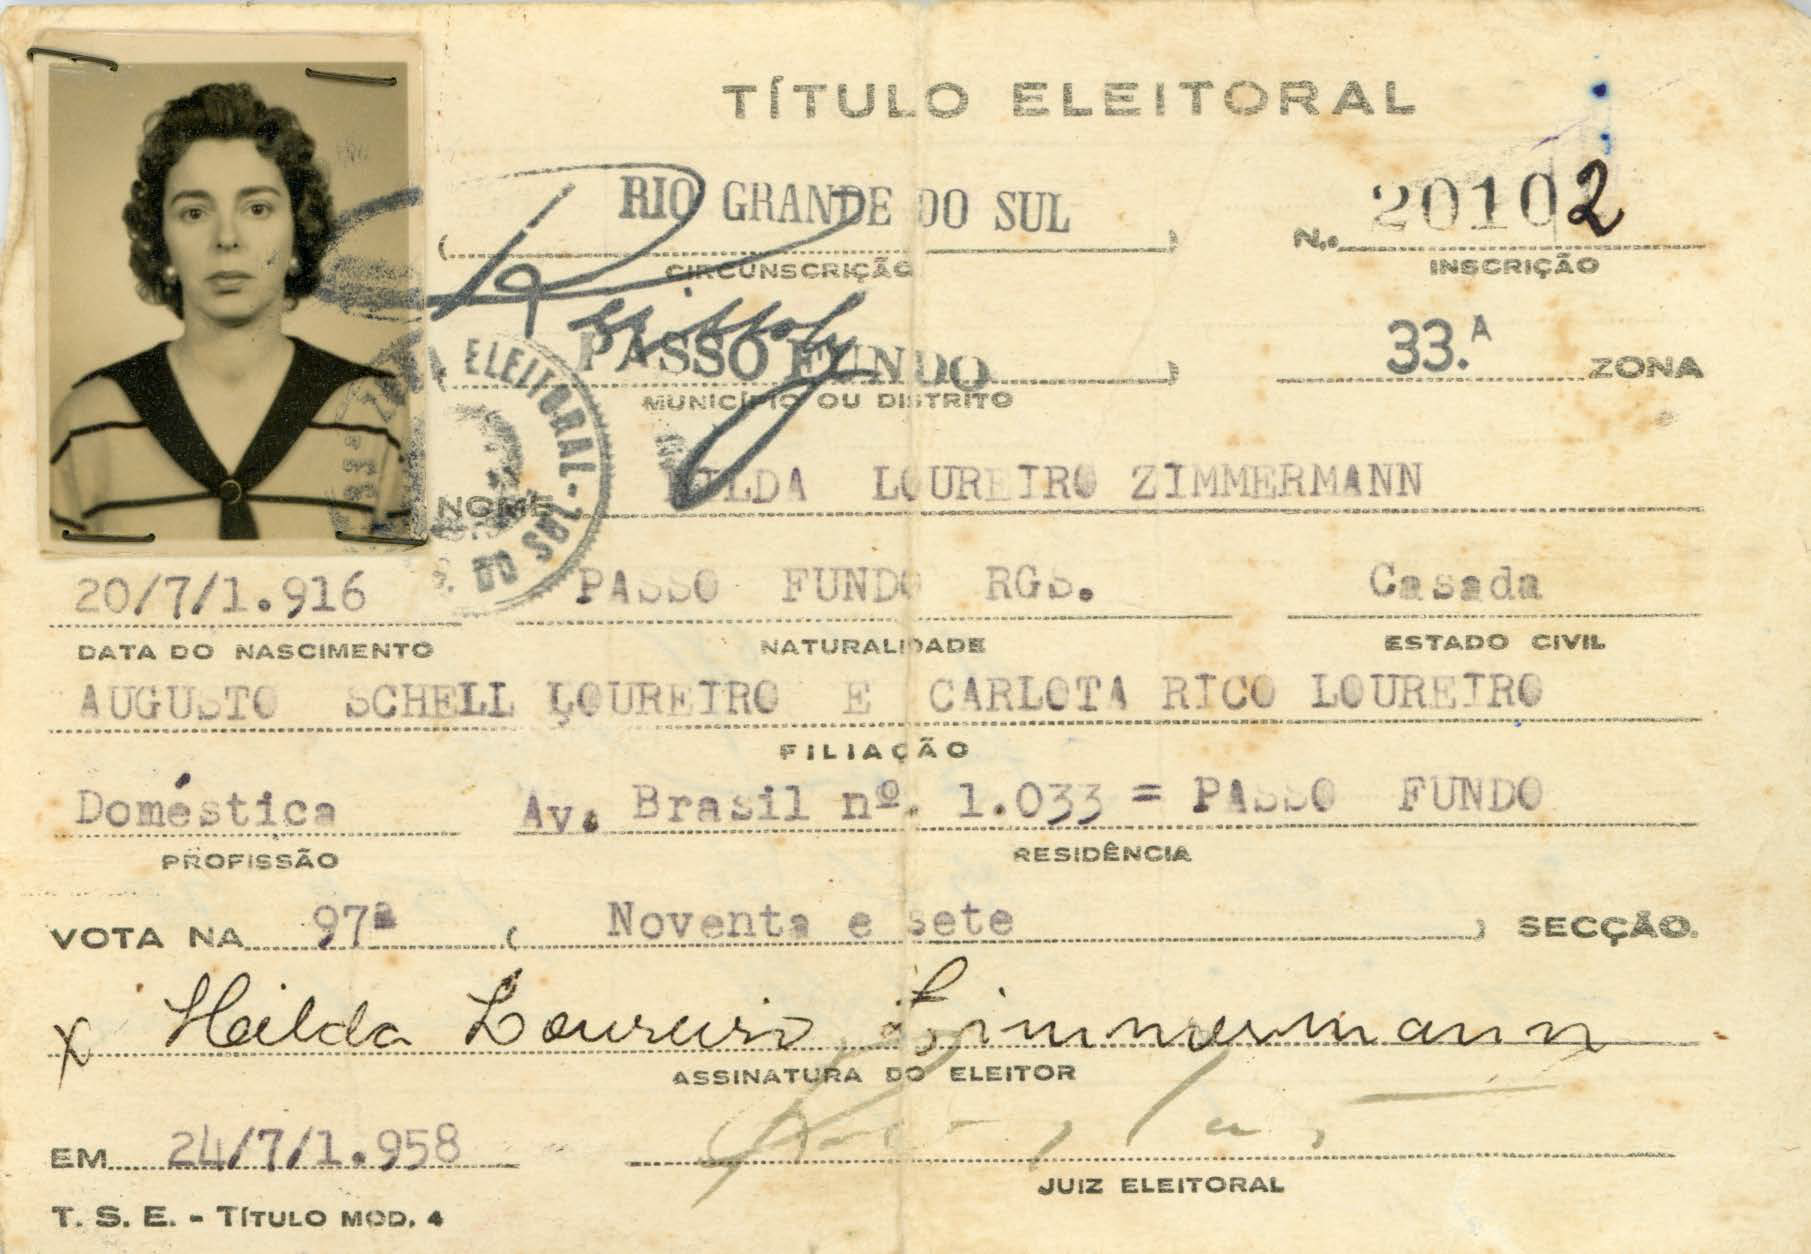 TÍTULO ELEITORAL
RIO GRANDE DO SUL
CIRCUNSCRIÇÃO
N.º 20102
INSCRIÇÃO
PASSO FUNDO
MUNICÍPIO OU DISTRITO
33.A ZONA
ZONA ELEITORAL - R. G. DO SUL
NOME HILDA LOUREIRO ZIMMERMANN
20/7/1.916 PASSO FUNDO RGS. Casada
DATA DO NASCIMENTO NATURALIDADE ESTADO CIVIL
AUGUSTO SCHELL LOUREIRO E CARLOTA RICO LOUREIRO
FILIAÇÃO
Doméstica Av. Brasil nº. 1.033 = PASSO FUNDO
PROFISSÃO RESIDÊNCIA
VOTA NA 97ª ( Noventa e sete ) SECÇÃO.
x Hilda Loureiro Zimmermann
ASSINATURA DO ELEITOR
EM 24/7/1.958
JUIZ ELEITORAL
T. S. E. - TÍTULO MOD. 4